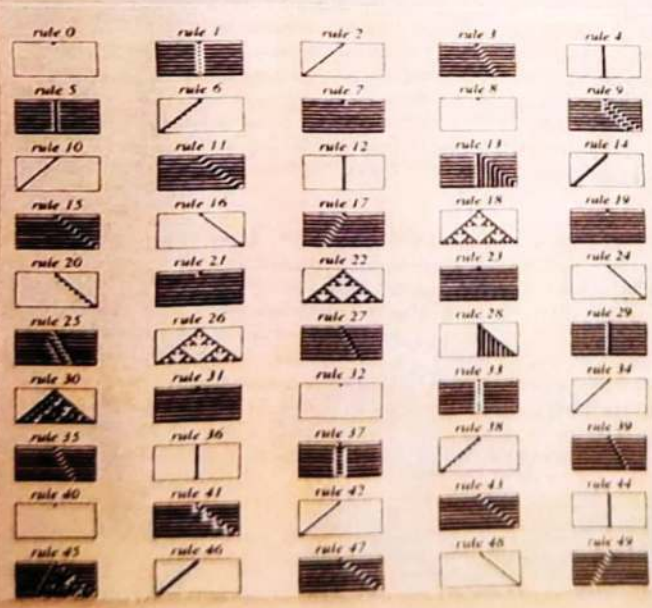 rule 0 rule 1 rule 2 rule 3 rule 4
rule 5 rule 6 rule 7 rule 8 rule 9
rule 10 rule 11 rule 12 rule 13 rule 14
rule 15 rule 16 rule 17 rule 18 rule 19
rule 20 rule 21 rule 22 rule 23 rule 24
rule 25 rule 26 rule 27 rule 28 rule 29
rule 30 rule 31 rule 32 rule 33 rule 34
rule 35 rule 36 rule 37 rule 38 rule 39
rule 40 rule 41 rule 42 rule 43 rule 44
rule 45 rule 46 rule 47 rule 48 rule 49